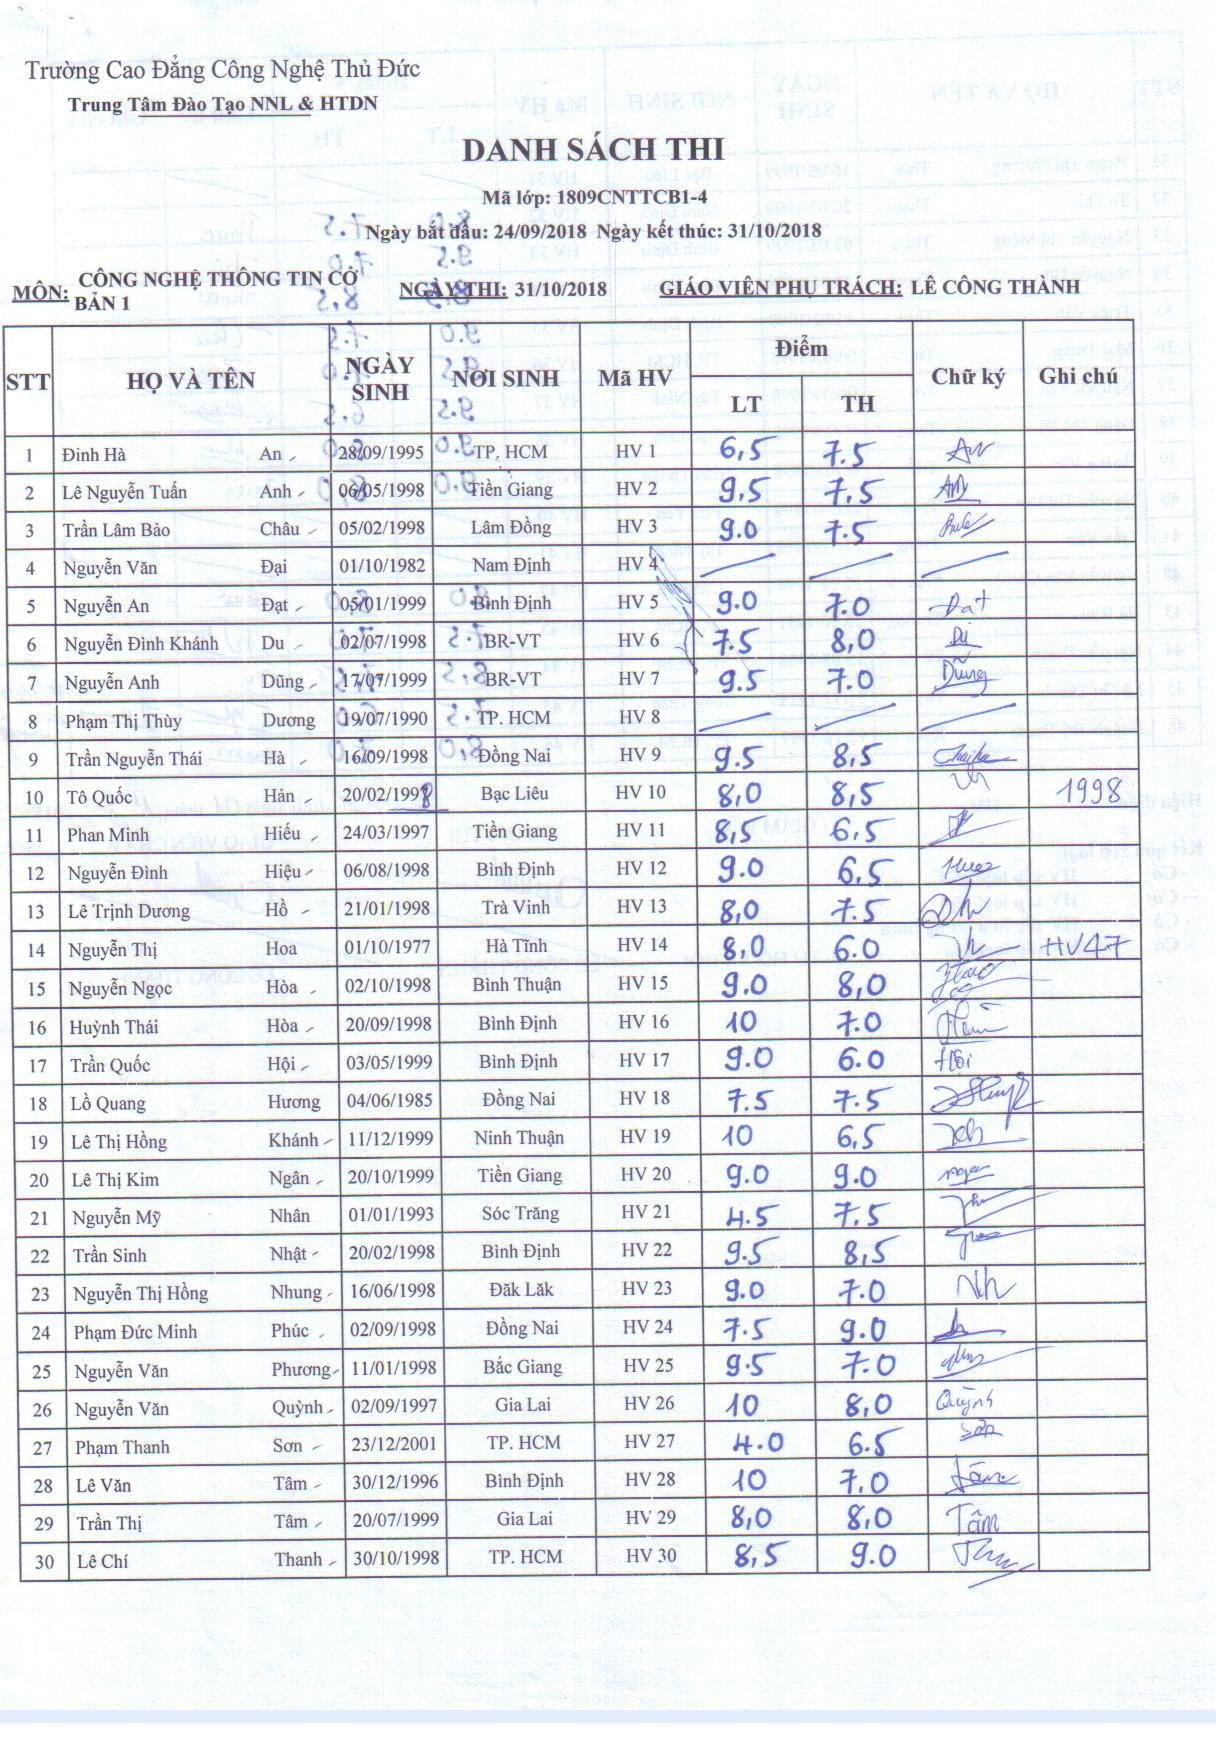 Trường Cao Đẳng Công Nghệ Thủ Đức
Trung Tâm Đào Tạo NNL & HTDN
DANH SÁCH THI
Mã lớp: 1809CNTTCB1-4
Ngày bắt đầu: 24/09/2018 Ngày kết thúc: 31/10/2018
MÔN: CÔNG NGHỆ THÔNG TIN CƠ BẢN 1 NGÀY THI: 31/10/2018 GIÁO VIÊN PHỤ TRÁCH: LÊ CÔNG THÀNH
STT HỌ VÀ TÊN NGÀY SINH NƠI SINH Mã HV Điểm Chữ ký Ghi chú
LT TH
1 Đinh Hà An 28/09/1995 TP. HCM HV 1 6,5 7.5 An
2 Lê Nguyễn Tuấn Anh 06/05/1998 Tiền Giang HV 2 9,5 7.5
3 Trần Lâm Bảo Châu 05/02/1998 Lâm Đồng HV 3 9.0 7.5
4 Nguyễn Văn Đại 01/10/1982 Nam Định HV 4
5 Nguyễn An Đạt 05/01/1999 Bình Định HV 5 9.0 7.0 Đạt
6 Nguyễn Đình Khánh Du 02/07/1998 BR-VT HV 6 7.5 8,0 Du
7 Nguyễn Anh Dũng 17/07/1999 BR-VT HV 7 9.5 7.0 Dũng
8 Phạm Thị Thùy Dương 19/07/1990 TP. HCM HV 8
9 Trần Nguyễn Thái Hà 16/09/1998 Đồng Nai HV 9 9.5 8,5
10 Tô Quốc Hán 20/02/1997 8 Bạc Liêu HV 10 8,0 8,5 1998
11 Phan Minh Hiếu 24/03/1997 Tiền Giang HV 11 8,5 6,5
12 Nguyễn Đình Hiệu 06/08/1998 Bình Định HV 12 9.0 6,5
13 Lê Trịnh Dương Hồ 21/01/1998 Trà Vinh HV 13 8,0 7.5
14 Nguyễn Thị Hoa 01/10/1977 Hà Tĩnh HV 14 8,0 6.0 HV47
15 Nguyễn Ngọc Hòa 02/10/1998 Bình Thuận HV 15 9.0 8,0
16 Huỳnh Thái Hòa 20/09/1998 Bình Định HV 16 10 7.0
17 Trần Quốc Hội 03/05/1999 Bình Định HV 17 9.0 6.0 Hội
18 Lồ Quang Hương 04/06/1985 Đồng Nai HV 18 7.5 7.5
19 Lê Thị Hồng Khánh 11/12/1999 Ninh Thuận HV 19 10 6,5
20 Lê Thị Kim Ngân 20/10/1999 Tiền Giang HV 20 9.0 9.0
21 Nguyễn Mỹ Nhân 01/01/1993 Sóc Trăng HV 21 4.5 7.5
22 Trần Sinh Nhật 20/02/1998 Bình Định HV 22 9.5 8,5
23 Nguyễn Thị Hồng Nhung 16/06/1998 Đăk Lăk HV 23 9.0 7.0 Nh
24 Phạm Đức Minh Phúc 02/09/1998 Đồng Nai HV 24 7.5 9.0
25 Nguyễn Văn Phương 11/01/1998 Bắc Giang HV 25 9.5 7.0
26 Nguyễn Văn Quỳnh 02/09/1997 Gia Lai HV 26 10 8,0 Quỳnh
27 Phạm Thanh Sơn 23/12/2001 TP. HCM HV 27 4.0 6.5 Sơn
28 Lê Văn Tâm 30/12/1996 Bình Định HV 28 10 7.0 Tâm
29 Trần Thị Tâm 20/07/1999 Gia Lai HV 29 8,0 8,0 Tâm
30 Lê Chí Thanh 30/10/1998 TP. HCM HV 30 8,5 9.0